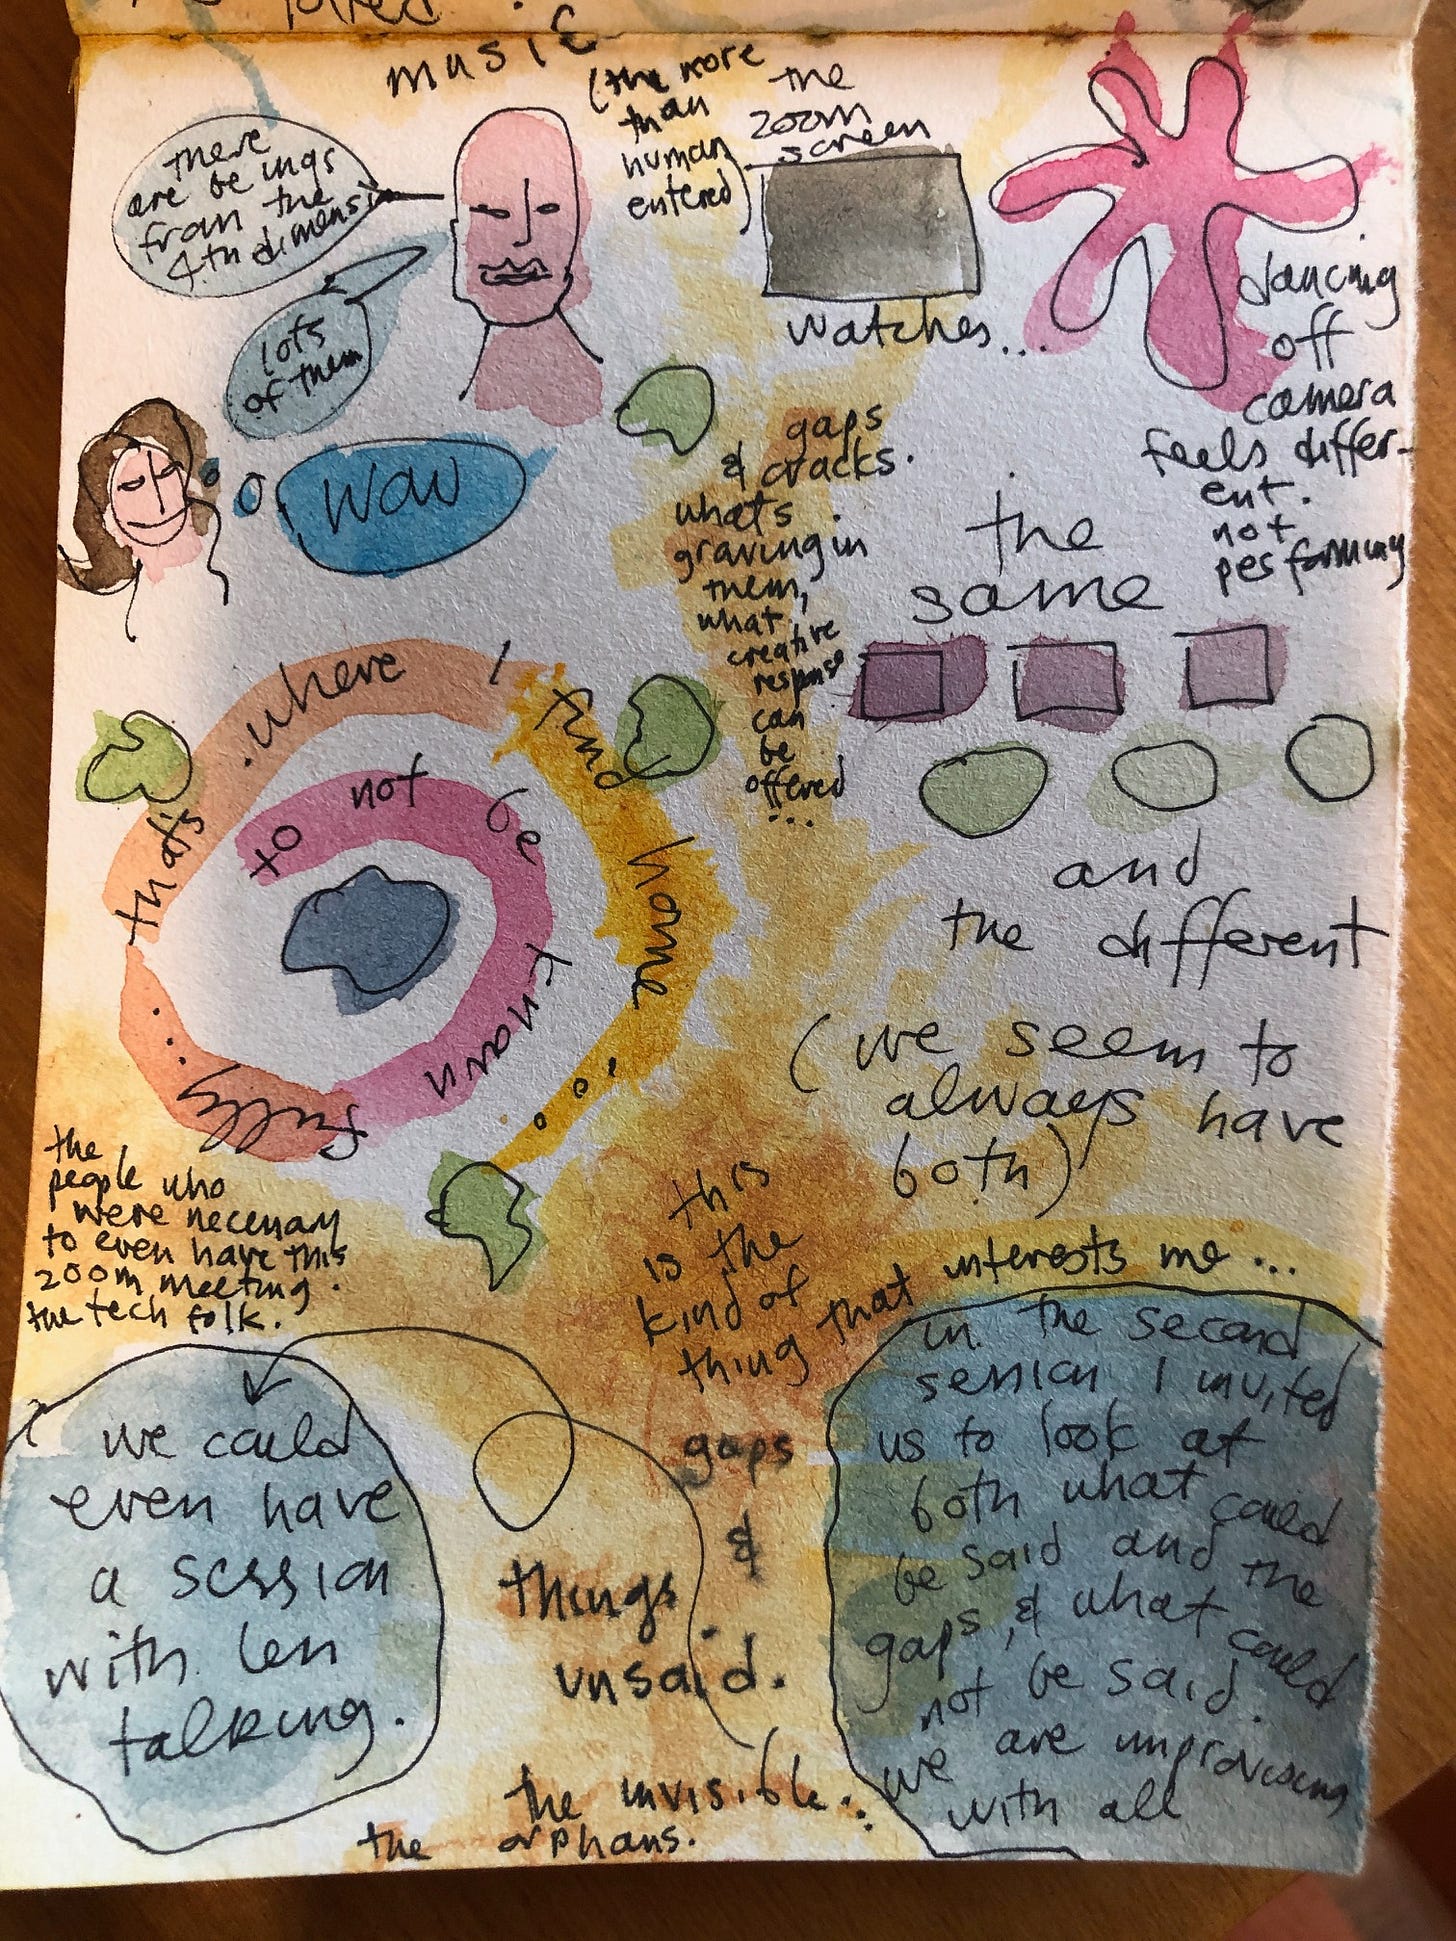 music
(the more
than
human
entered)
the
zoom
screen
watches...
there
are beings
from the
4th dimensi
lots
of them
wow
dancing
off
camera
feels differ-
ent.
not
performing
gaps
& cracks.
whats
growing in
them,
what
creative
response
can
be
offered
...
the
same
and
the different
(we seem to
always have
both)
to not be known fully... that's where I find home...
the
people who
were necessary
to even have this
zoom meeting.
the tech folk.
this
is the
kind of
thing that interests me...
we could
even have
a session
with len
talking.
gaps
&
things
unsaid.
the invisible..
the orphans.
in the second
session I invited
us to look at
both what could
be said and the
gaps, & what could
not be said.
we are improvising
with all